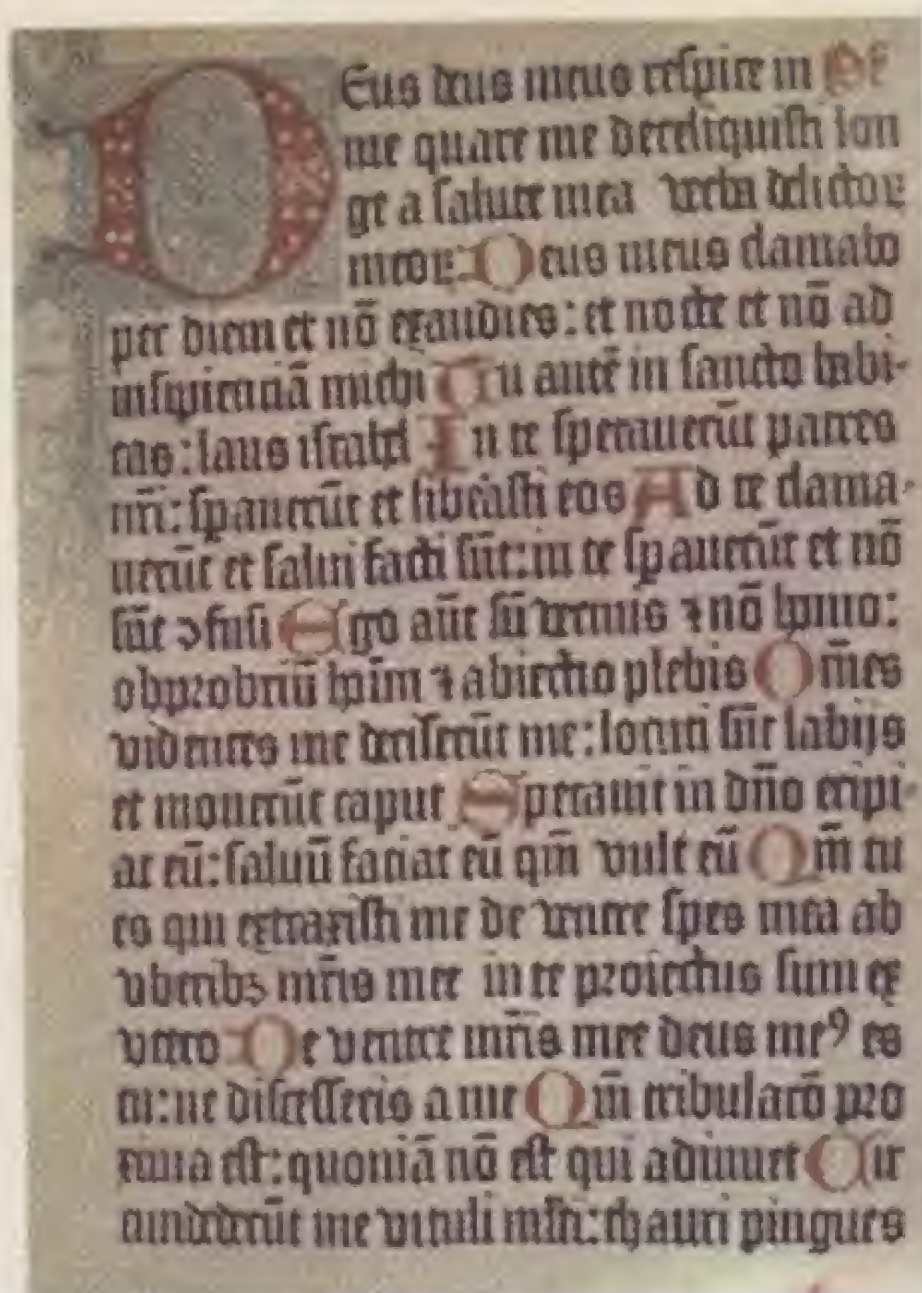 DEus deus meus respice in
me quare me dereliquisti lon
ge a salute mea verba delictoꝝ
meoꝝ: Deus meus clamabo
per diem et nō exaudies: et nocte et nō ad
insipienciā michi Tu autē in sancto habi-
tas: laus israhel In te sperauerūt patres
nr̄i: spauerūt et libeāsti eos Ad te clama-
uerūt et salui facti sūt: in te spauerūt et nō
sūt ꝯfusi Ego aūt sū vermis ⁊ nō homo:
obprobriū hoīm ⁊ abiectio plebis Om̄es
videntes me deriserūt me: locuti sūt labijs
et mouerūt caput Sperauit in dn̄o eripi-
at eū: saluū faciat eū qm̄ vult eū Qm̄ tu
es qui extraxisti me de ventre spes mea ab
vberibꝫ mr̄is mee in te proiectus sum ex
vtero De ventre mr̄is mee deus meꝰ es
tu: ne discesseris a me Qm̄ tribulacō pro
xima est: quoniā nō est qui adiuuet Cir
cumdederūt me vituli ml̄ti: thauri pingues